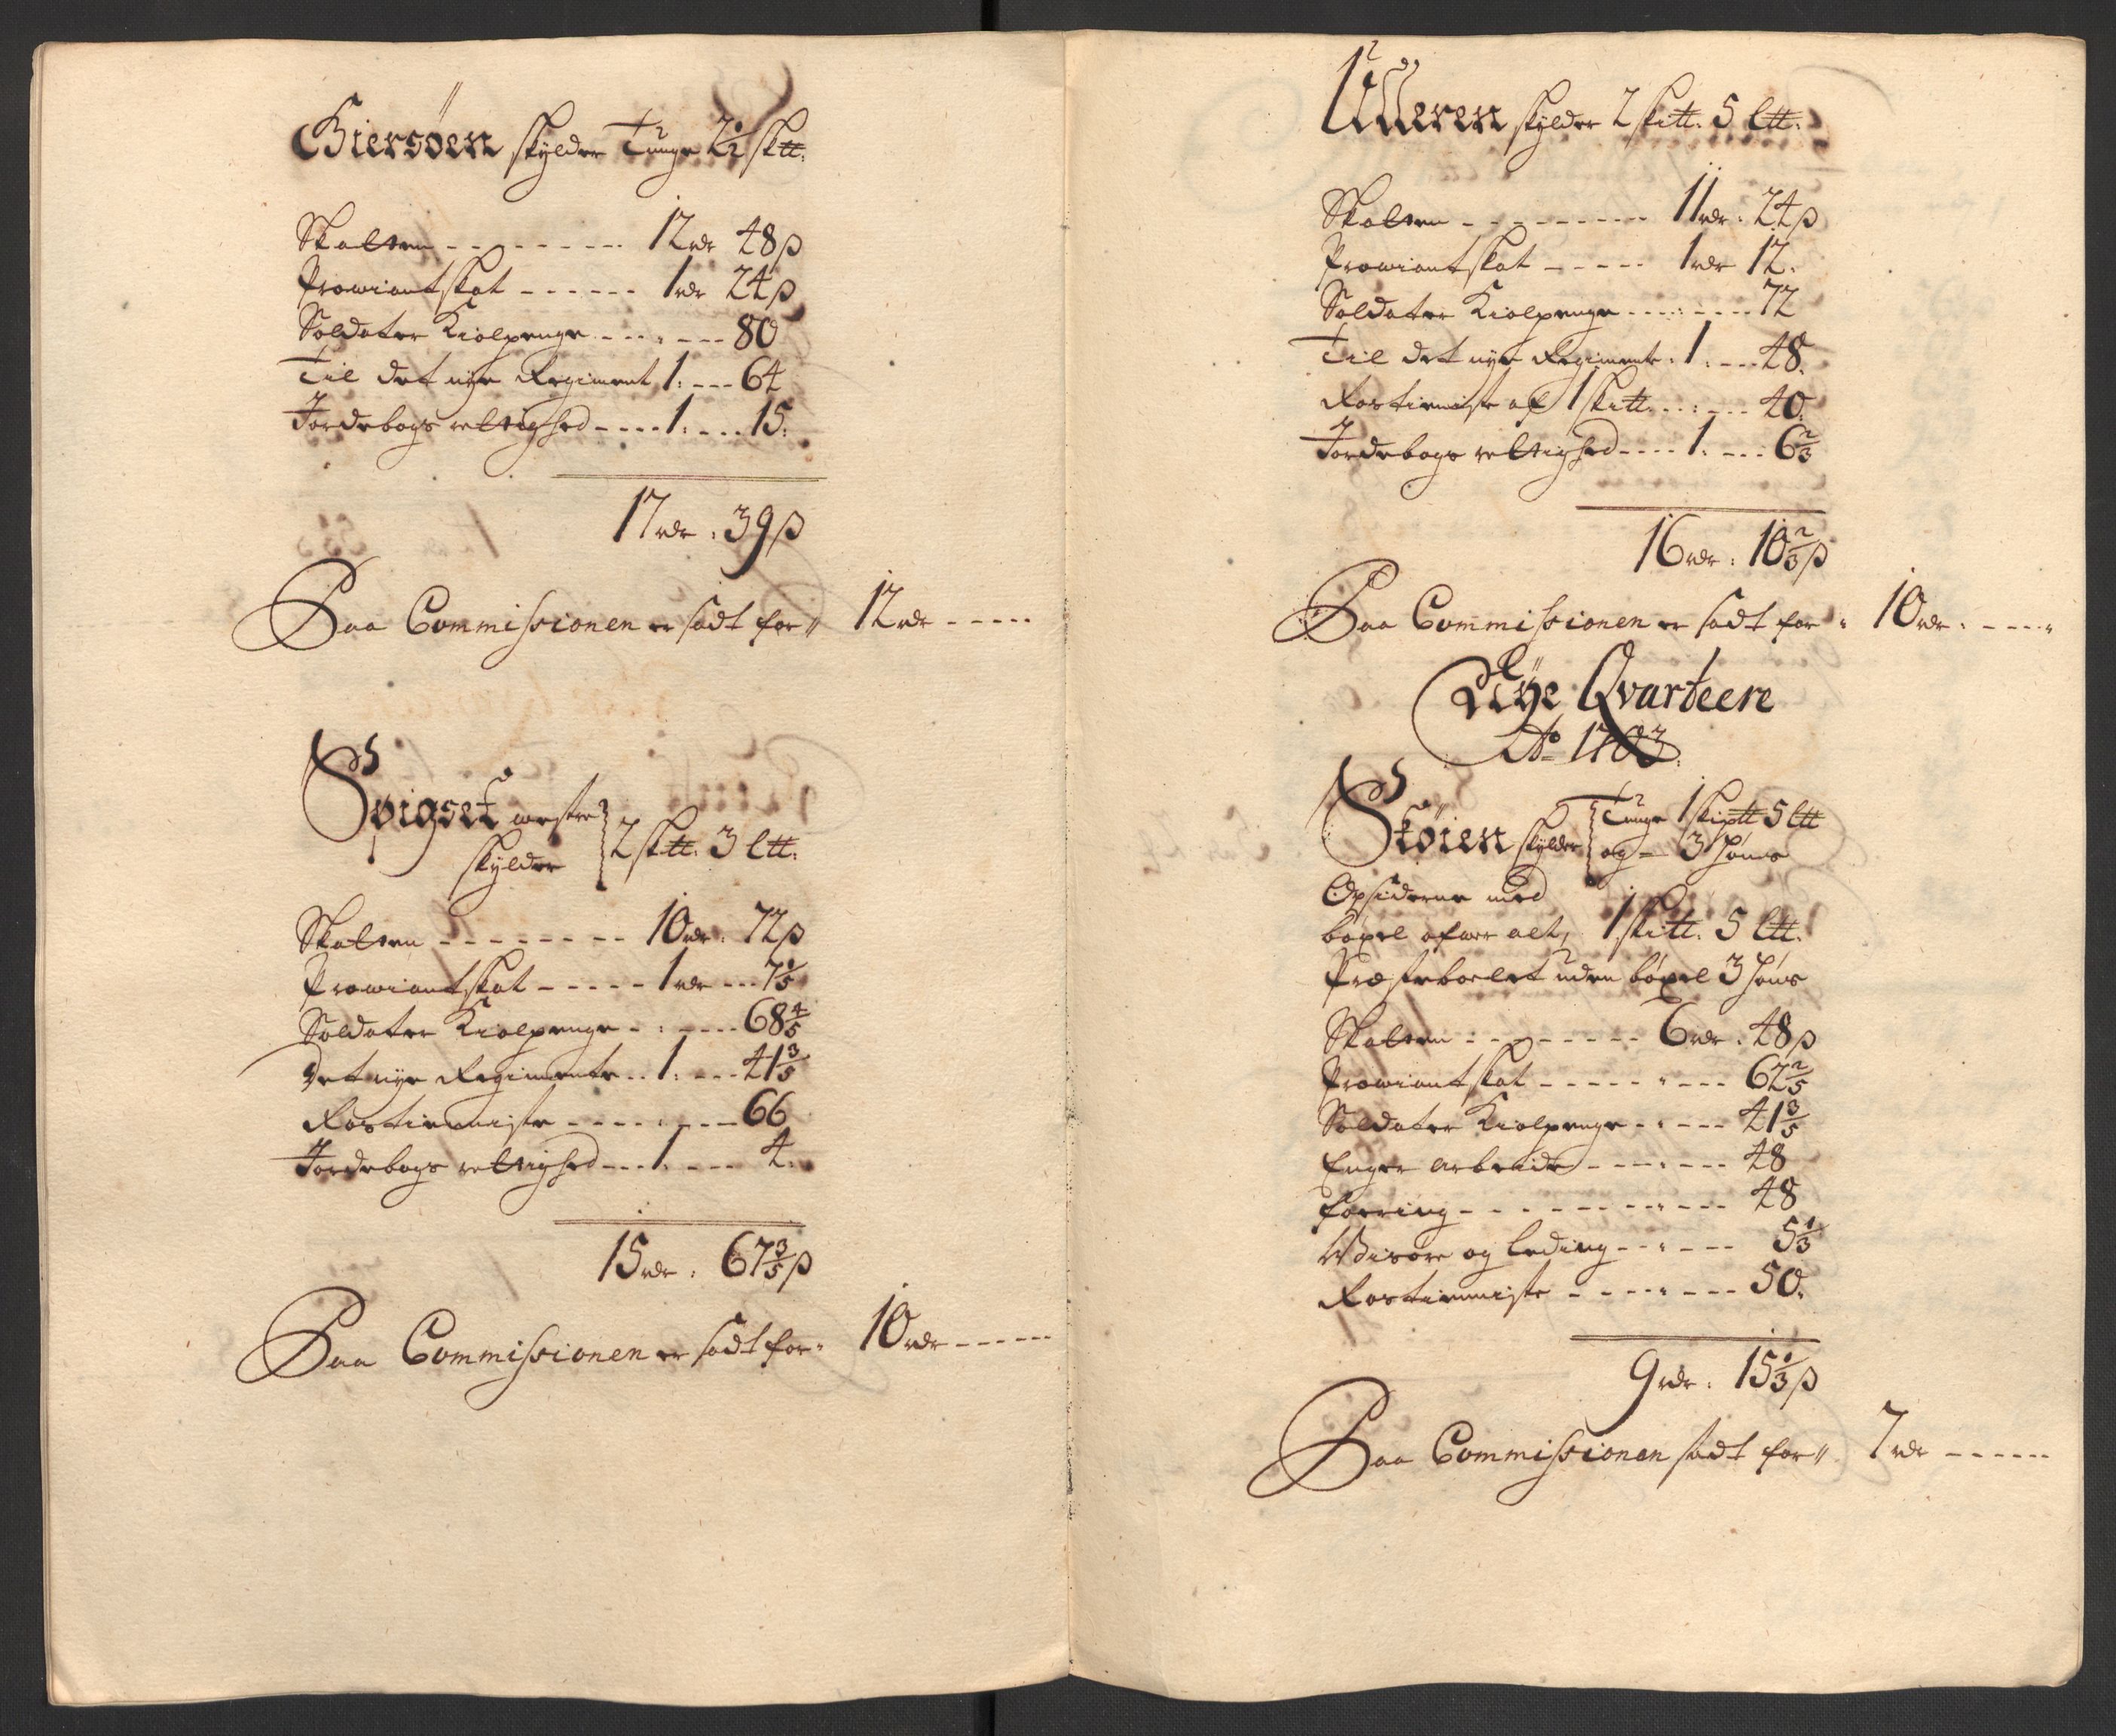 Giersøen skylder Tunge 2½ sktt.
Skatten - - - - - - - - 12 rdr 48 ß
Prowiantskat - - - - - - 1 rdr 24 ß
Soldater Kiolpenge - - - - - - 80
Til det nye Regiment 1: - - - 64
Jordebogs rettighed - - - - 1: - - - 15:
17 rdr: 39 ß
Paa Commissionen er sadt for " 12 rdr - - - - -
Spigset westre
skylder 2 sktt. 3 ltt:
Skatten - - - - - - - - 10 rdr: 72 ß
Prowiantskat - - - - - 1 rdr - - - 7 1/5
Soldater Kiolpenge - : - - - - 68 4/5
Det nye Regimente - - 1: - - - 41 3/5
Rostienniste - - - - : - - - 66
Jordebogs rettighed - - - 1: - - - 4:
15 rdr: 67 3/5 ß
Paa Commissionen er sadt for " 10 rdr - - - - -
Ulleren skylder 2 skitt. 5 ltt:
Skatten - - - - - - - - - 11 rdr: 24 ß
Prowiantskat - - - - - 1 rdr 12:
Soldater Kiolpenge - - - : - - - - 72
Til det nye Regimente: 1: - - - 48:
Rostieniste af 1 skitt - - : - - - 40:
Jordebogs rettighed - - - - 1: - - - 6 2/3
16 rdr: 10 2/3 ß
Paa Commissionen er sadt for " 10 rdr: - - - - "
Nye Qvarteere
Ao 1703:
Støien skylder Tunge 1 skiptt 5 ltt
og - 3 Høns
Opsiderne med
böxel ofwer alt, 1 skitt. 5 ltt:
Præsteboelet uden böxel 3 høns
Skatten - - - - - - - - - 6 rdr: 48 ß
Prowiantskat - - - - - " - - - 62 2/5
Soldater Kiolpenge - : - - - 41 3/5
Enger arbeide - - - - : - - - 48
Foering - - - - - - - - " - - - 48
Wdisøre og leding - - : - - - 5 1/3
Rostienniste - - - - " - - - 50:
9 rdr: 15 1/3 ß
Paa Commissionen sadt for " 7 rdr - - - - - -